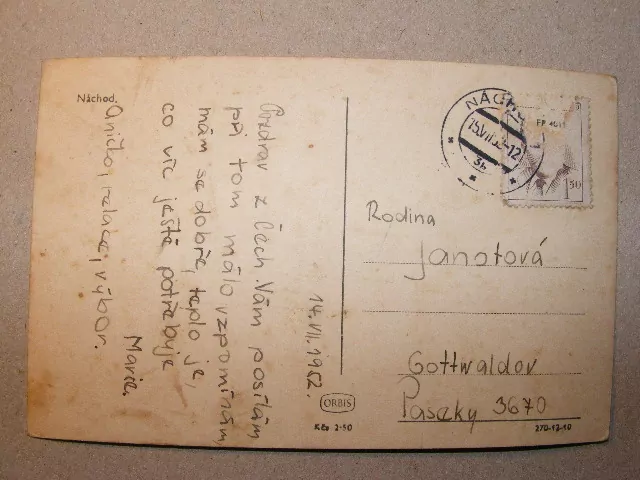 Náchod.
14.VII.1952.
Pozdrav z Čech Vám posílám
při tom málo vzpomínám,
mám se dobře, teplo je,
co víc ještě potřebuje
Aničko, relace, výbor.
Marie.
NÁCH
15.VII.52-12
3b
1 50
Rodina
Janotová
Gottwaldov
Paseky 3670
ORBIS
Kčs 2·50
270-12-10